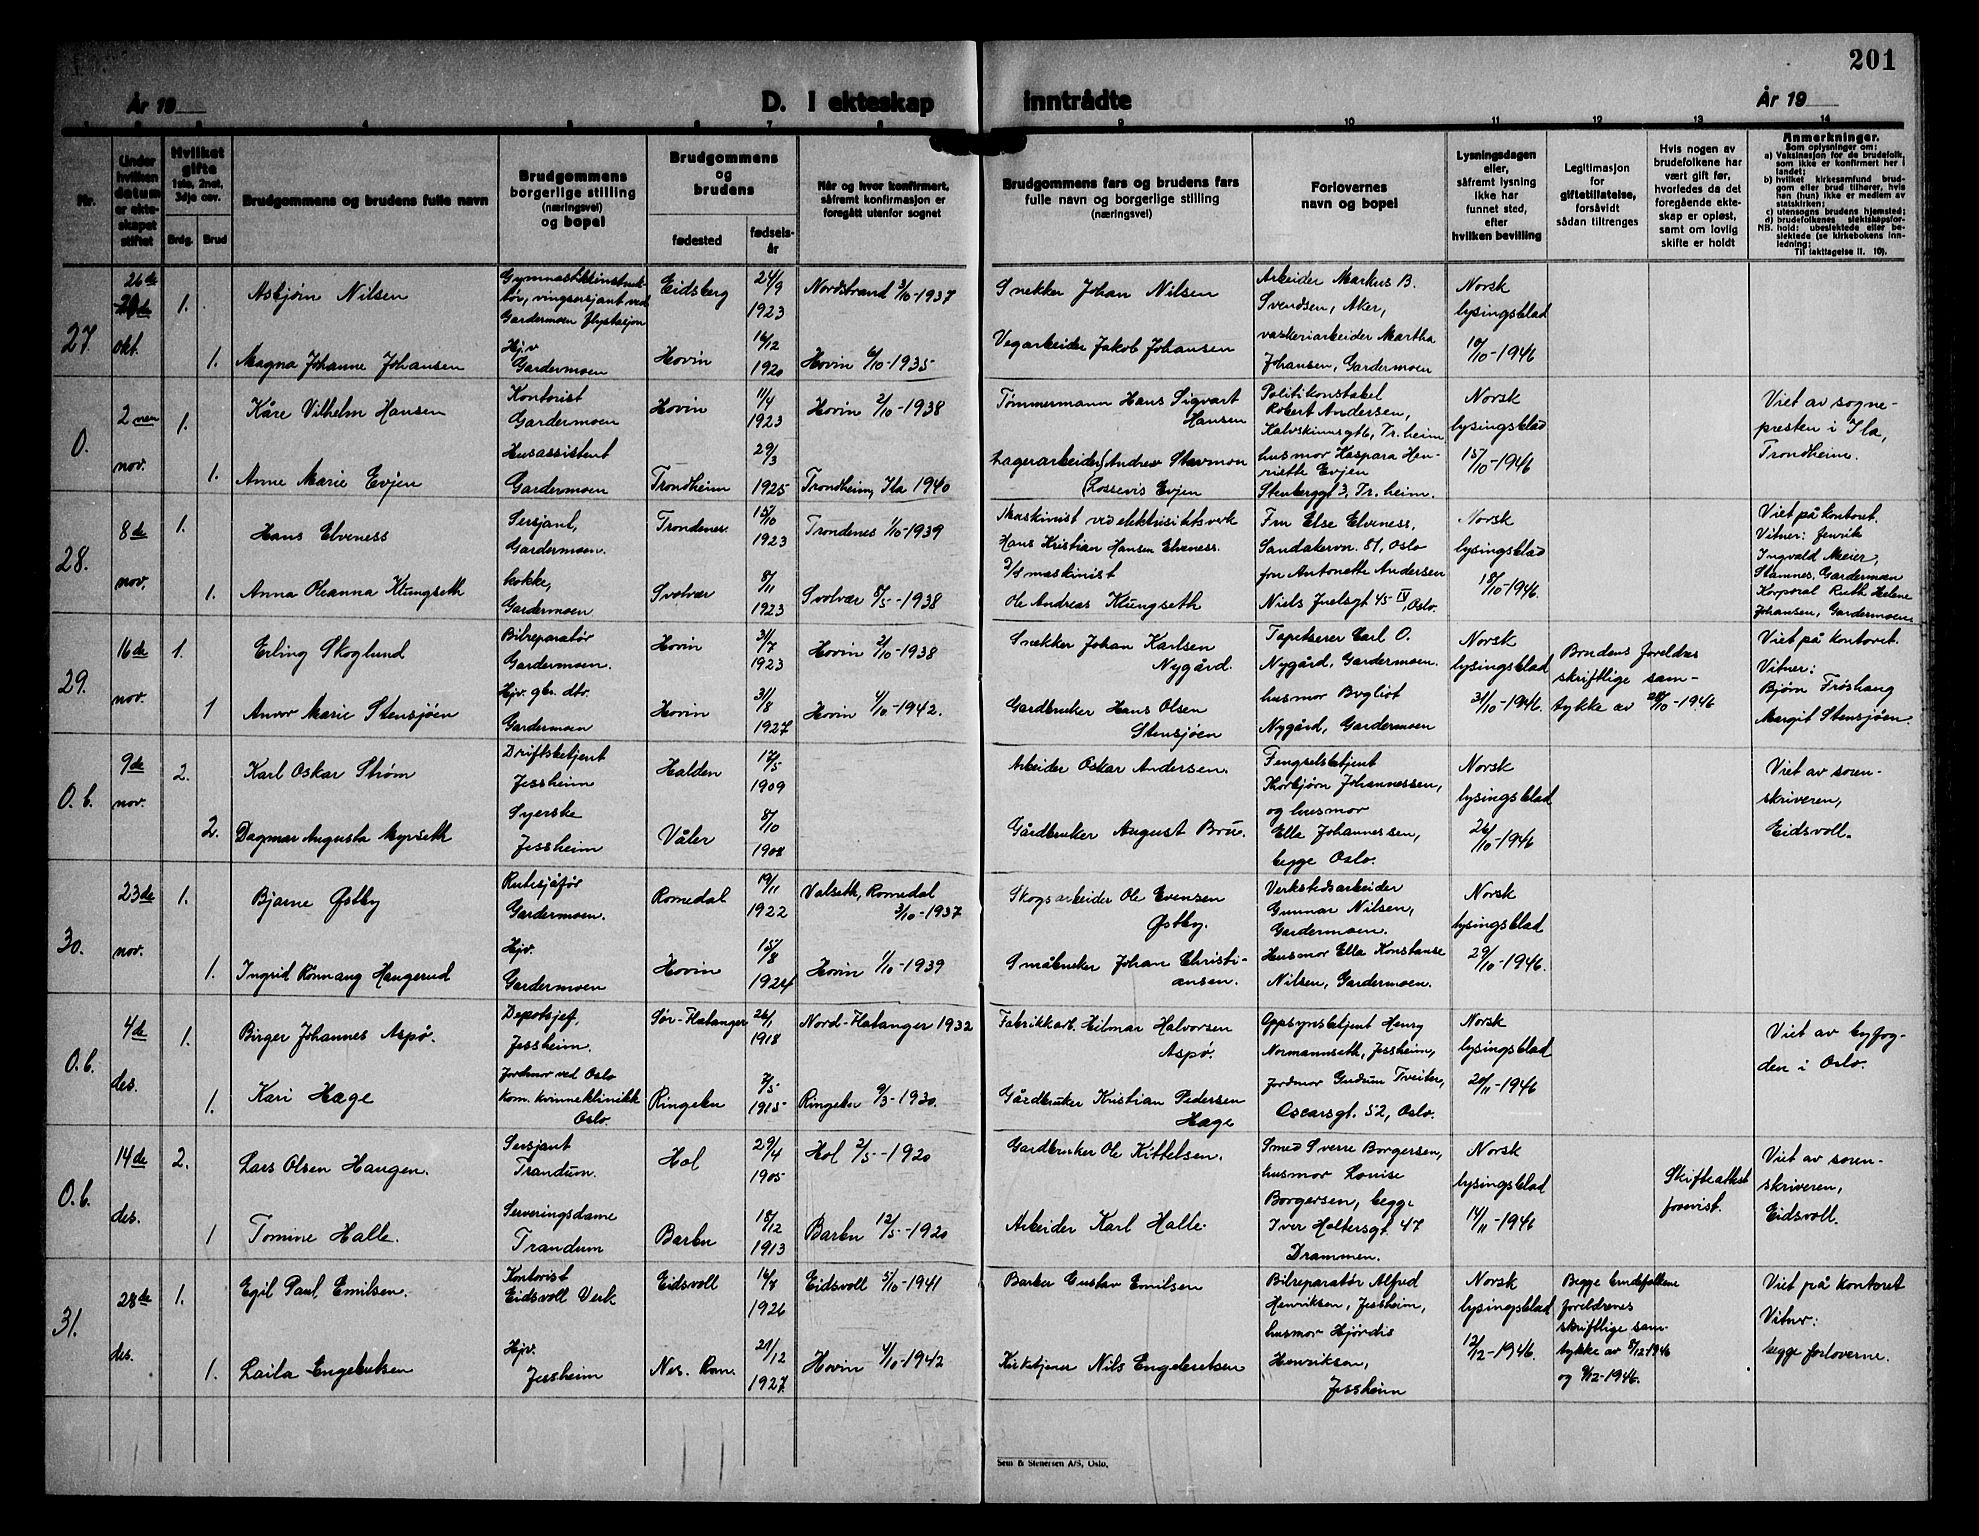 201
År 19
D. I ekteskap inntrådte
År 19
1 2 3 4 5 6 7 8 9 10 11 12 13 14
Nr.
Under hvilken datum er ekteskapet stiftet
Hvilket gifte 1ste, 2net, 3dje osv.
Brdg. Brud
Brudgommens og brudens fulle navn
Brudgommens borgerlige stilling (næringsvei) og bopel
Brudgommens og brudens
fødested
fødselsår
Når og hvor konfirmert, såfremt konfirmasjon er foregått utenfor sognet
Brudgommens fars og brudens fars fulle navn og borgerlige stilling (næringsvei)
Forlovernes navn og bopel
Lysningsdagen eller, såfremt lysning ikke har funnet sted, efter hvilken bevilling
Legitimasjon for giftetillatelse, forsåvidt sådan tiltrenges
Hvis nogen av brudefolkene har vært gift før, hvorledes da det foregående ekteskap er opløst, samt om lovlig skifte er holdt
Anmerkninger.
Som oplysninger om:
a) Vaksinasjon for de brudefolk, som ikke er konfirmert her i landet;
b) hvilket kirkesamfund brudgom eller brud tilhører, hvis han (hun) ikke er medlem av statskirken;
c) utensogns brudens hjemsted;
d) brudefolkenes slektskapsforhold: ubeslektede eller beslektede (se kirkebokens innledning;
NB.
Til iakttagelse II. 10).
27. 26de okt.
1. Asbjørn Nilsen
Gymnastikkinstruktør, vingsersjant ved Gardermoen flystasjon
Eidsberg
24/9 1923
Nordstrand 3/10-1937
Snekker Johan Nilsen
Arbeider Markus B. Svendsen, Aker,
Norsk lysingsblad 10/10-1946
1. Magna Johanne Johansen
Hjv. Gardermoen
Hovin
16/12 1920
Hovin 6/10-1935
Vegarbeider Jakob Johansen
vaskeriarbeider Martha Johansen, Gardermoen
0. 2nen nov.
1. Kåre Vilhelm Hansen
Kontorist Gardermoen
Hovin
11/4 1923
Hovin 2/10-1938
Tømmermann Hans Sigvart Hansen
Politikonstabel Robert Andersen, Kalvskinnsgt6, Tr.heim
Norsk lysingsblad 15/10-1946
Viet av sognepresten i Ila, Trondheim.
1. Anne Marie Evjen
Husassistent Gardermoen
Trondheim
29/3 1925
Trondheim, Ila 1940
Lagerarbeider Andrew
Evjen
husmor Kaspara Henriette Evjen
Tr.heim.
28. 8de nov.
1. Hans Elveness
Sersjant, Gardermoen.
Trondenes
15/10 1923
Trondenes 1/10-1939
Maskinist ved elektrisitetsverk Hans Kristian Hansen Elveness.
Fru Else Elveness, Sandakervn. 81, Oslo
Norsk lysingsblad 18/10-1946.
Viet på kontoret.
Vitner: Henrik Ingvald Meier Stamnes, Gardermoen
Korporal Ruth Helene Johansen, Gardermoen
1. Anna Oleanna Klungseth
kokke, Gardermoen
Svolvær
8/11 1923
Svolvær 8/5-1938
maskinist Ole Andreas Klungseth
fru Antonette Andersen Niels Juelsgt 45 IV, Oslo.
29. 16de nov.
1. Erling Skoglund
Bilreparatør Gardermoen.
Hovin
31/7 1923
Hovin 2/10-1938
Snekker Johan Karlsen Nygård.
Tapetserer Carl O. Nygård, Gardermoen.
Norsk lysingsblad 31/10-1946.
Brudens foreldres skriftlige samtykke av 28/10-1946
Viet på kontoret.
Vitner:
Bjørn Frøshaug
Margit Stensjøen.
1 Anne Marie Stensjøen
Hjv. gbr. dtr. Gardermoen
Hovin
31/8 1927
Hovin 4/10-1942.
Gardbruker Hans Olsen Stensjøen
husmor Bogliot Nygård, Gardermoen
0.b. 9de nov.
2. Karl Oskar Strøm
Driftsbetjent Jessheim
Halden
17/5 1909
Arbeider Oskar Andersen.
Fengselsbetjent Thorbjørn Johannessen, og husmor Ella Johannessen, begge Oslo.
Norsk lysingsblad 26/10-1946
Viet av sorenskriveren, Eidsvoll.
2. Dagmar Augusta Myrseth
Syerske Jessheim
Våler
8/10 1908
Gårdbruker August Brú.
30. 23de nov.
1. Bjarne Østby
Rutesjåfør Gardermoen.
Romedal
19/11 1922
Valseth, Romedal 3/10-1937
Skogsarbeider Ole Evensen Østby.
Verkstedsarbeider Gunnar Nilsen, Gardermoen.
Norsk lysingsblad 29/10-1946.
1. Ingrid Rønnaug Haugerud
Hjv. Gardermoen
Hovin
15/8 1924
Hovin 1/10-1939
Småbruker Johan Christiansen.
Husmor Ella Konstanse Nilsen, Gardermoen.
0.b. 4de des.
1. Birger Johannes Aspø.
Depotsjef, Jessheim.
Sør-Flatanger
26/1 1918
Nord-Flatanger 1932
Fabrikkarb. Hilmar Halvorsen Aspø.
Oppsynsbetjent Henry Normannseth, Jessheim,
Norsk lysingsblad 20/11-1946
Viet av byfogden i Oslo.
1. Kari Hage
Jordmor ved Oslo kom. kvinneklinikk Oslo.
Ringebu
7/5 1915
Ringebu 9/3-1930.
Gårdbruker Kristian Pedersen Hage
Jordmor Gudrun Tveiter, Oscarsgt. 52, Oslo.
0.b. 14de des.
2. Lars Olsen Haugen.
Sersjant Trandum.
Hol
29/4 1905
Hol 2/5-1920
Gardbruker Ole Kittelsen.
Smed Sverre Borgersen, husmor Louise Borgersen, begge Iver Holtersgt. 47 Drammen.
Norsk lysingsblad 14/11-1946
Skifteattest forevist.
Viet av sorenskriveren, Eidsvoll.
1 Tomine Halle.
Serveringsdame Trandum
Barbu
18/12 1913
Barbu 12/5-1920
Arbeider Karl Halle.
31. 28de des.
1. Egil Paul Emilsen.
Kontorist Eidsvoll Verk
Eidsvoll
16/7 1926
Eidsvoll 5/10-1941
Barker Gustav Emilsen
Bilreparatør Alfred Henriksen, Jessheim, husmor Hjørdis Henriksen, Jessheim
Norsk lysingsblad 12/12-1946.
Begge brudefolkene foreldrenes skriftlige samtykke av 8/12-1946 og 9/12-1946.
Viet på kontoret
Vitner: begge forloverne.
1. Laila Engebretsen
Hjv. Jessheim
Nes. Rom.
21/12 1927
Hovin 4/10-1942
Kirketjener Nils Engebretsen
Sem & Stenersen A/S, Oslo.